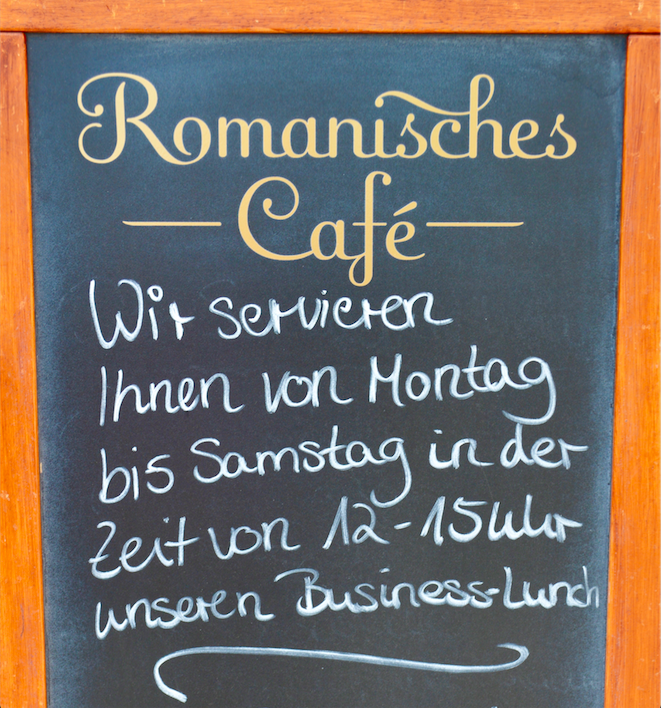 Romanisches
Café
Wir servieren
Ihnen von Montag
bis Samstag in der
Zeit von 12-15 Uhr
unseren Business-Lunch